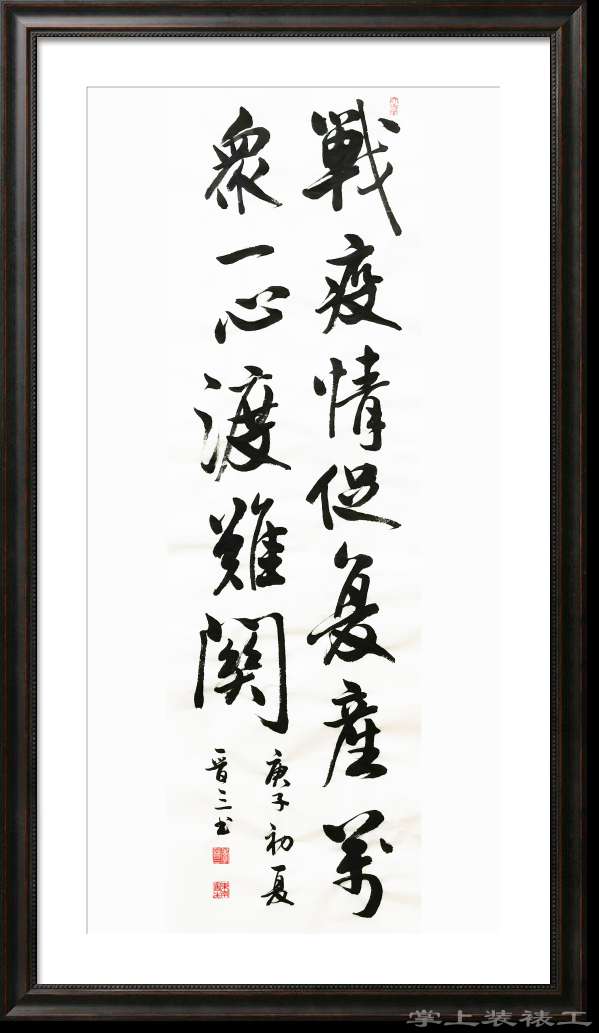 戰疫情促复產萬
衆一心渡難關
庚子初夏
晉三书
掌上装裱工